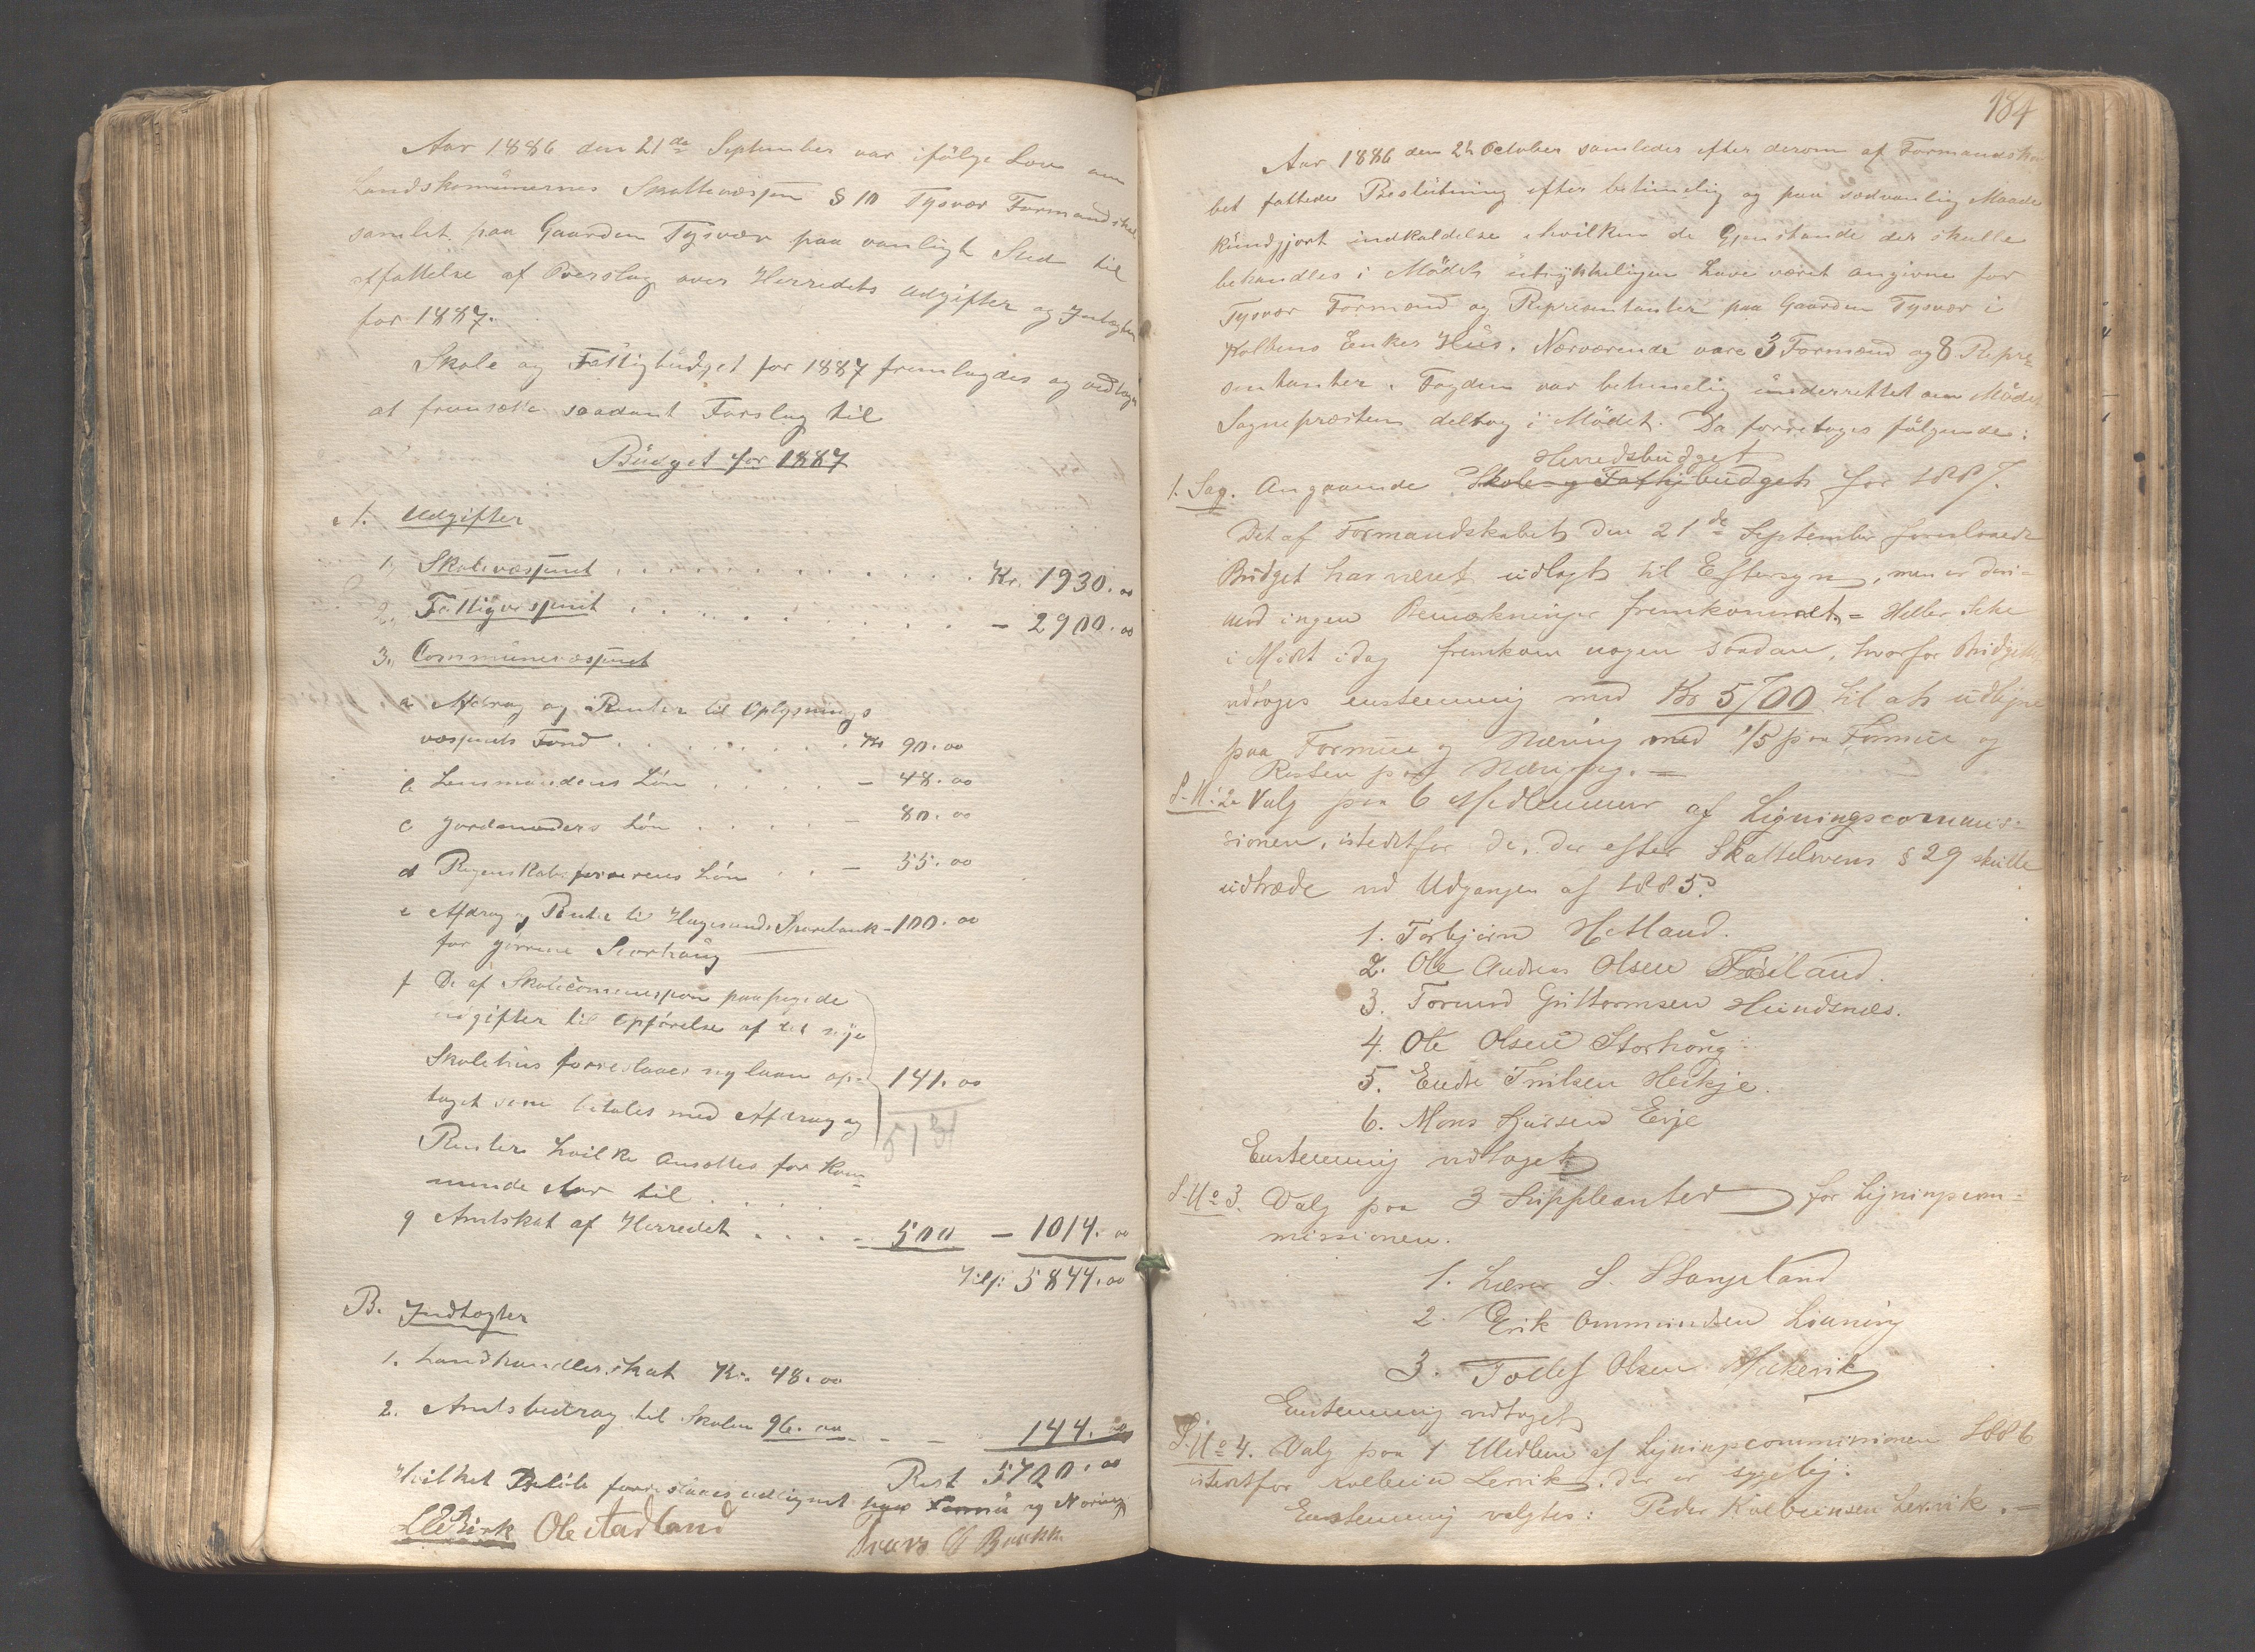 Aar 1886 den 21de September var ifølge Lov om
Landskomünernes Skattevæsen § 10 Tysvær Formandskab
samlet paa Gaarden Tysvær paa vanligt Sted til
Affattelse af Overslag over Herredets Udgifter og Indtægter
for 1887.
Skole og Fattigbüdget for 1887 fremlagdes og vedtoges
at fremsætte saadant Forslag til
Büdget for 1887
A. Udgifter
1, Skolevæsenet . . . Kr. 1930.00
2, Fattigvæsenet . . . - 2900.00
3, Communevæsenet
a Afdrag og Renter til Oplysnings
væsenets Fond . . . Kr 90.00
b Lensmandens Løn . . . - 48.00
c Jordmoders Løn . . . - 80.00
d Regenskabsførerens Løn . . - 55.00
e Afdrag og Renter til Haugesunds Sparebank - 100.00
for Storhaug
f De af Skolecommissionen paapegede
Udgifter til Opførelse af det nye
Skolehüs foreslaaes ny laan op-
taget som betales med Afdrag og 141.00
Renter hvilke ansættes for Kom-
mende Aar til . . .
g Amtskat af Herredet . . . - 500 - 1014.00
Tils: 5844.00
B. Indtægter
1. Landhandlerskat Kr. 48.00
2. Amtsbidrag til Skolen 96.00 - - - 144.00
Rest 5700.00
Hvilket Beløb foreslaaes udlignet paa Formü og Næring
Ole Aadland
Lars O Bakke
184
Aar 1886 den 2t October samledes efter derom af Formandska-
bet fattede Beslütning efter betimelig og paa sædvanlig Maade
kündgjort indkaldelse i hvilken de Gjenstande der skulle
behandles i Mødet üdtrykkeligen have været angivne for
Tysvær Formænd og Repræsentanter paa Gaarden Tysvær i
Koltens Enkes Hüs. Nærværende vare 3 Formænd og 8 Repræ-
sentanter. Fogden var betimelig ünderrettet om Mødet
Sognepræsten deltog i Mødet. Da foretoges følgende:
Herredsbüdget
1. Sag. Angaaende Skole og Fattigbüdget for 1887.
Det af Formandskabet den 21de September foreslaaede
Büdget har været üdlagt til Eftersyn, men er deri-
mod ingen Bemærkninger fremkommet. = Heller ikke
i Mødet idag fremkom nogen saadan, hvorfor Büdgettet
vedtoges enstemmig med Kr 5700 til at üdligne
paa Formüe og Næring med 1/5 paa Formüe og
Resten paa Næring. =
S. No. 2 Valg paa 6 Medlemmer af Ligningscommis-
sionen, istedetfor de, der efter Skattelovens § 29 skülle
üdtræde ved Udgangen af 1885.
1. Torbjørn Hetland.
2. Ole Andreas Olsen
3. Tormod Guttormsen Hündsnæs.
4. Ole Olsen Storhoüg
5. Endre Heskje.
6. Mons Sjursen Eige
Enstemmig vedtaget
S. No 3. Valg paa 3 Süppleanter for Ligningscom-
missionen.
1. Lærer S. Stangeland
2. Erik Ommundsen Lünning
3. Tollef Olsen
Enstemmig vedtaget
S. No 4. Valg paa 1 Medlem af Ligningscommissionen 1886
istedetfor Kolbein Lervik, der er sygelig:
Enstemmig valgtes: Peder Kolbeinsen Lervik. =